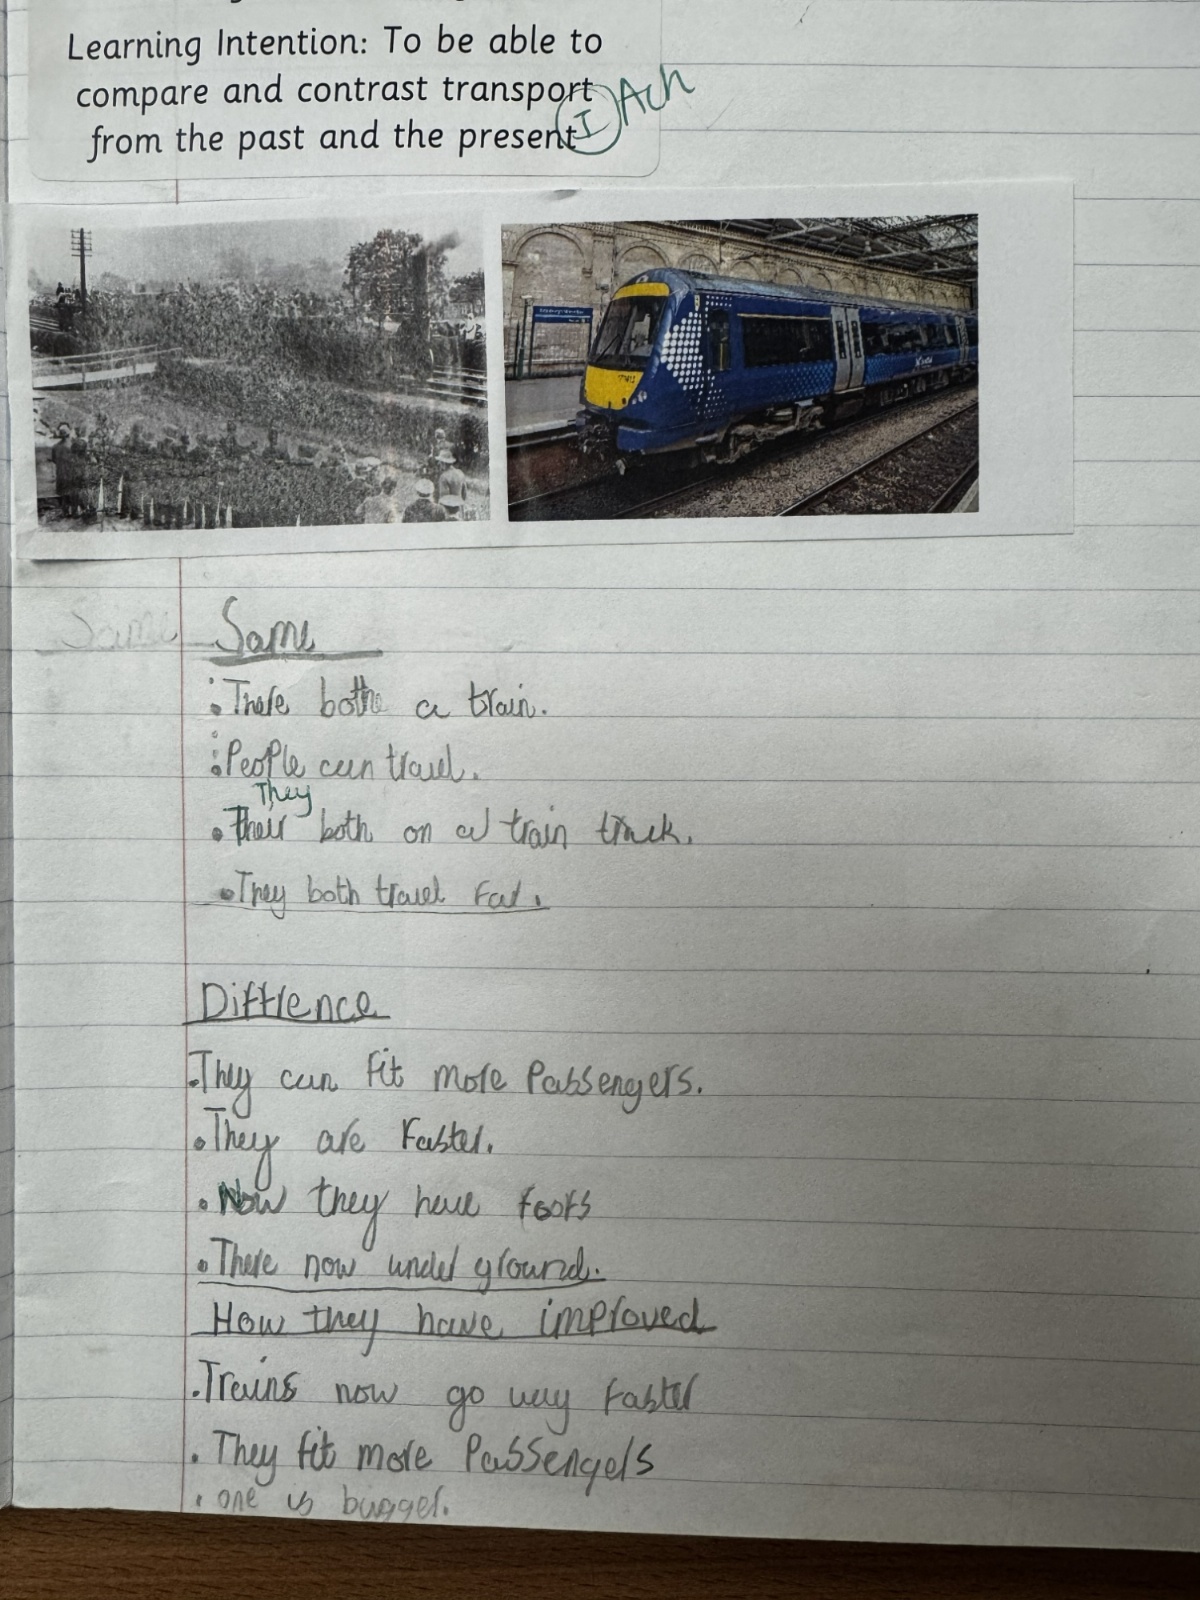 Learning Intention: To be able to
compare and contrast transport
from the past and the present
I Ach
Same Same
• There bothe a train.
• People can travel.
They
• Their both on a train track.
• They both travel far.
Diffrence
• They can fit more Passengers.
• They are Faster.
• Now they have roofs
• There now under ground.
How they have improved
• Trains now go way faster
• They fit more Passengers
• one is bugger.